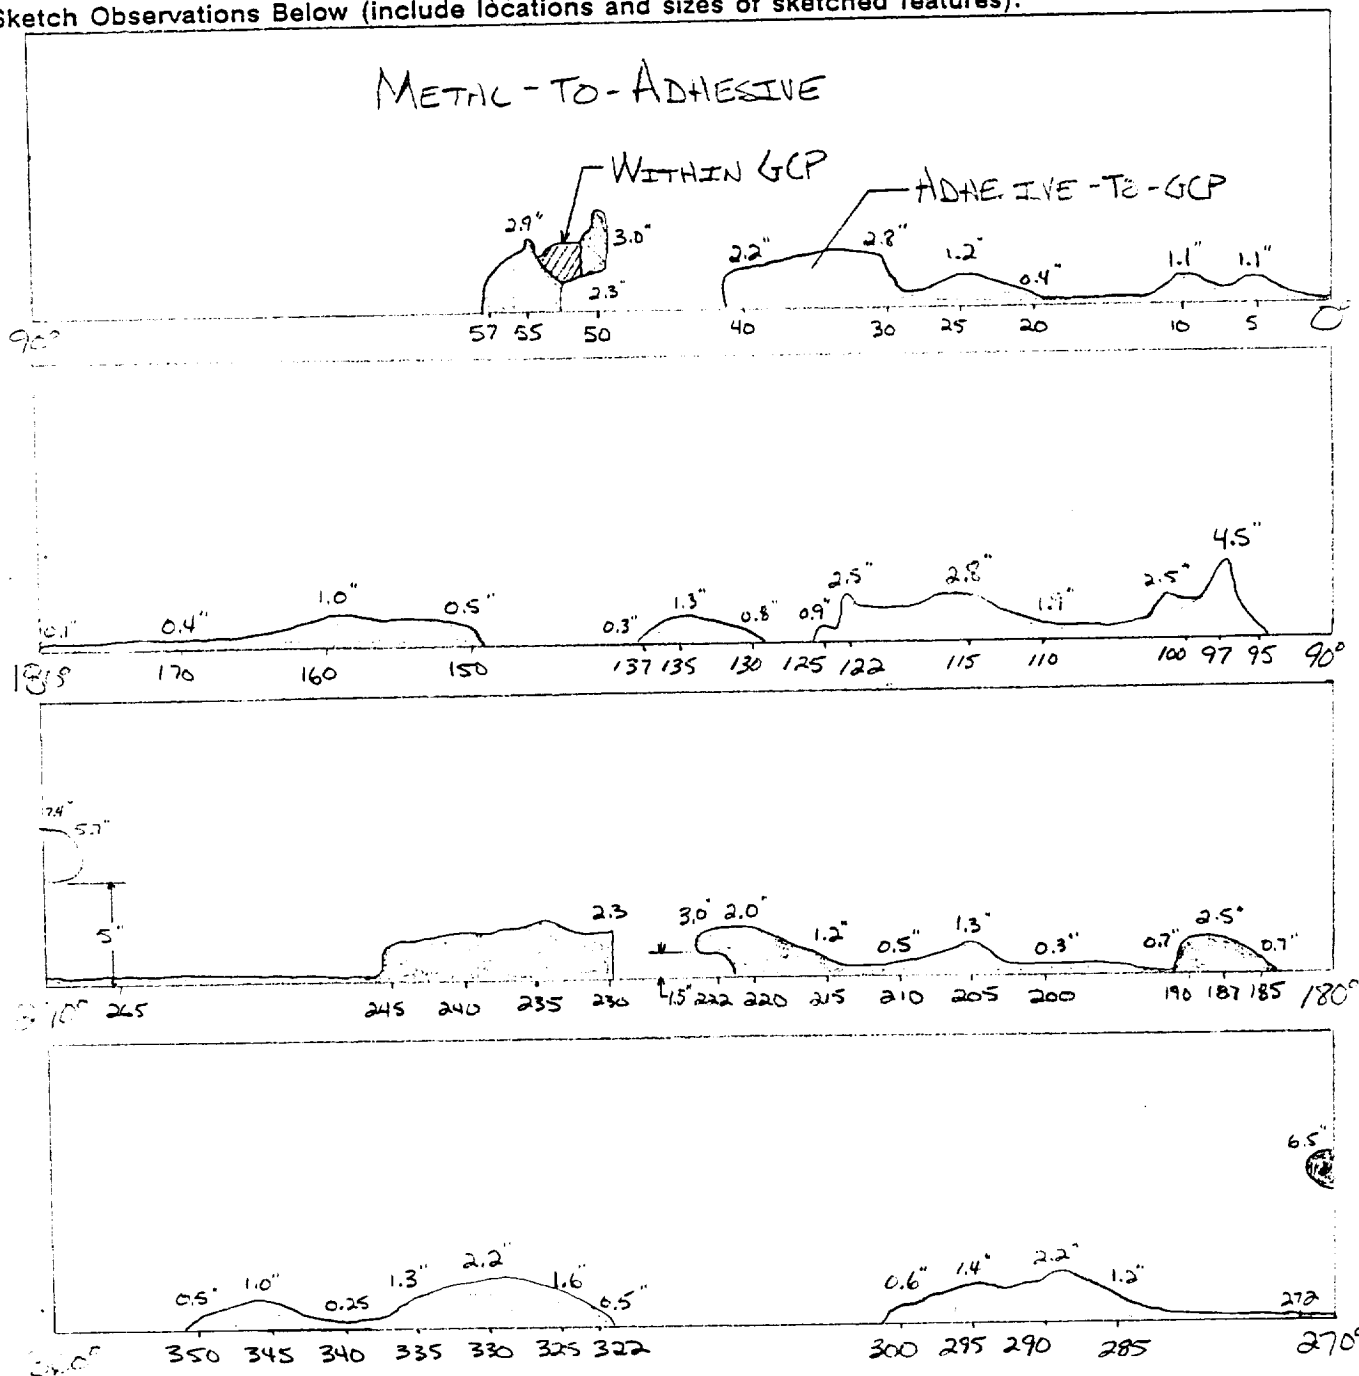 Sketch Observations Below (include locations and sizes of sketched features):
METAL-TO-ADHESIVE
WITHIN GCP
ADHE IVE-TO-GCP
2.9" 3.0" 2.3"
2.2" 2.8" 1.2" 0.4" 1.1" 1.1"
90° 57 55 50 40 30 25 20 10 5 0
4.5"
0.1" 0.4" 1.0" 0.5" 0.3" 1.3" 0.8" 0.9" 2.5" 2.8" 1.9" 2.5"
170 160 150 137 135 130 125 122 115 110 100 97 95 90°
7.4" 5.7"
5"
2.3 3.0" 2.0" 1.2" 0.5" 1.3" 0.3" 0.7" 2.5" 0.7"
1.5"
270° 265 245 240 235 230 222 220 215 210 205 200 190 187 185 180°
6.5"
0.5" 1.0" 0.25 1.3" 2.2" 1.6" 0.5" 0.6" 1.4" 2.2" 1.2" 272
350 345 340 335 330 325 322 300 295 290 285 270°